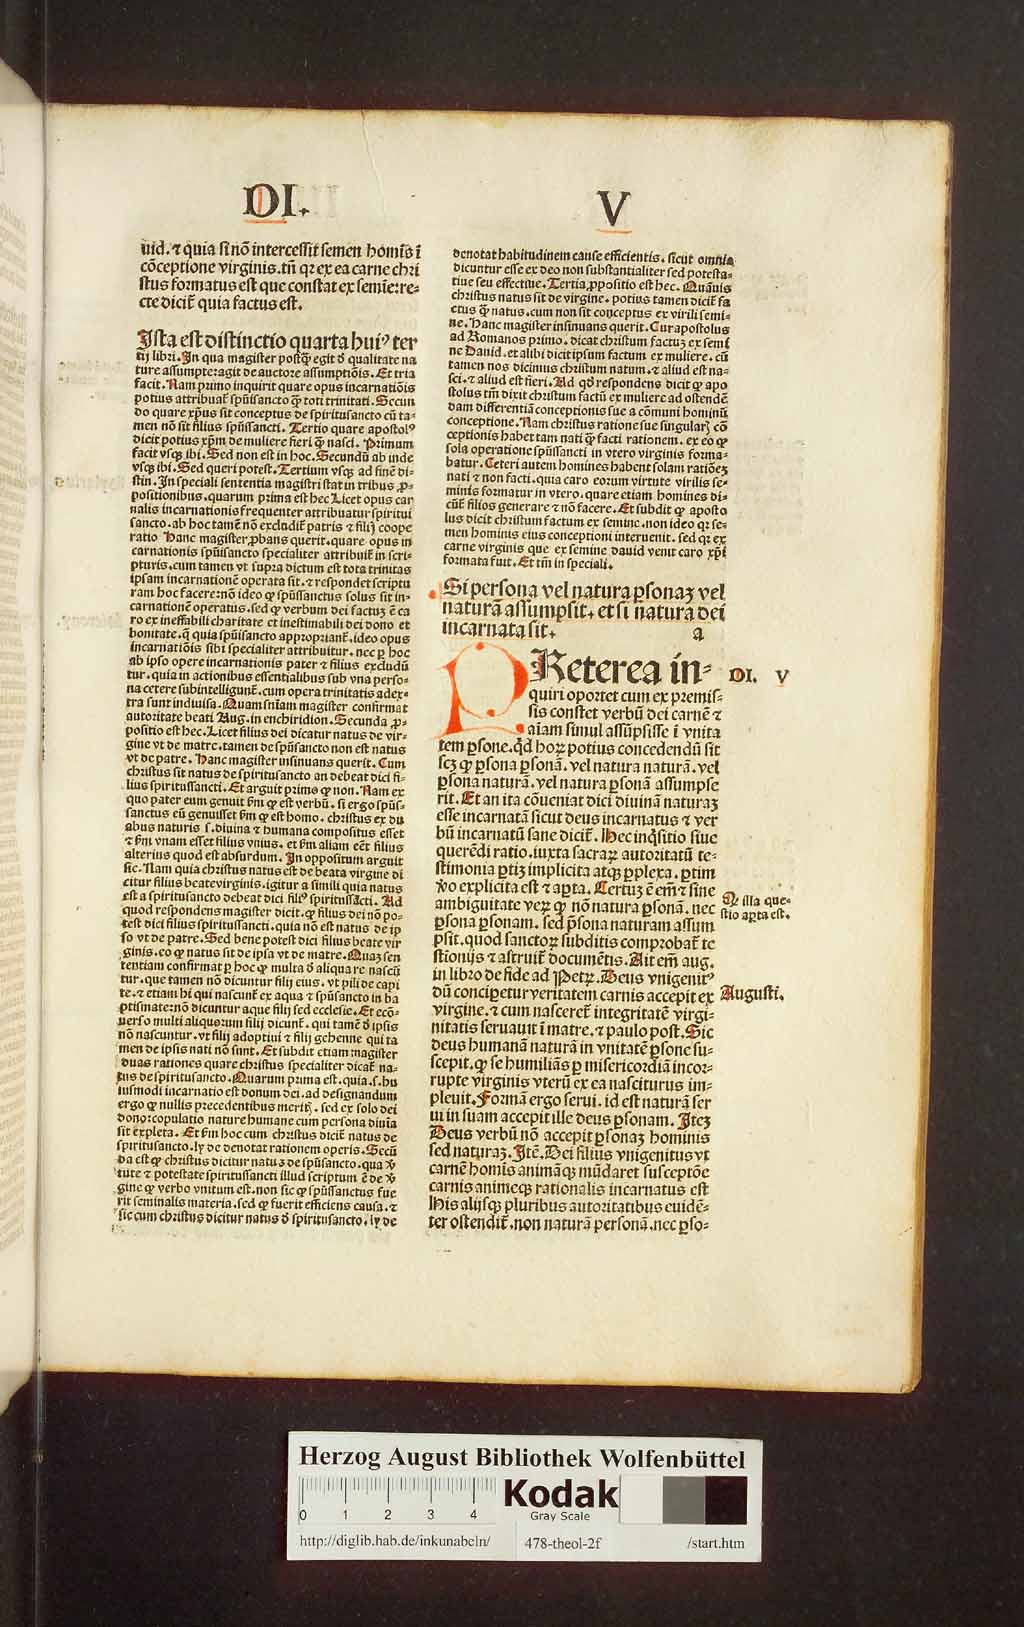 DI.
V
uid. ⁊ quia si nō intercessit semen homīs ī
cōceptione virginis. tñ qꝛ ex ea carne chri
stus formatus est que constat ex semīe: re-
cte dicit̄ quia factus est.
Ista est distinctio quarta huiꝰ ter
tij libri. In qua magister postꝙ̄ egit d̄ qualitate na
ture assumpte: agit de auctore assumptiōis. Et tria
facit. Nam primo inquirit quare opus incarnatiōis
potius attribuat̄ spūssancto ꝙ̄ toti trinitati. Secun
do quare xp̄us sit conceptus de spiritusancto cū ta-
men nō sit filius spūssancti. Tertio quare apostolꝰ
dicit potius xp̄m de muliere fieri ꝙ̄ nasci. Primum
facit vsqꝫ ibi. Sed non est in hoc. Secundū ab inde
vsqꝫ ibi. Sed queri potest. Tertium vsqꝫ ad finē di-
stin. In speciali sententia magistri stat in tribus ꝓ-
positionibus. quarum prima est hec Licet opus car
nalis incarnationis frequenter attribuatur spiritui
sancto. ab hoc tamē nō excludit̄ patris ⁊ filij coope
ratio Hanc magister ꝓbans querit. quare opus in
carnationis spūisancto specialiter attribuit̄ in scri-
pturis. cum tamen vt supra dictum est tota trinitas
ipsam incarnationē operata sit. ⁊ respondet scriptu
ram hoc facere: nō ideo ꝙ spūssanctus solus sit in-
carnationē operatus. sed ꝙ verbum dei factuꝫ ē ca
ro ex ineffabili charitate et inestimabili dei dono et
bonitate. q̄ quia spūisancto appropriant̄. ideo opus
incarnatiōis sibi specialiter attribuitur. nec ꝑ hoc
ab ipso opere incarnationis pater ⁊ filius excludū
tur. quia in actionibus essentialibus sub vna perso-
na cetere subintelligunt̄. cum opera trinitatis adex-
tra sunt indiuisa. Quam sn̄iam magister confirmat
autoritate beati Aug. in enchiridion. Secunda ꝓ-
positio est hec. Licet filius dei dicatur natus de vir-
gine vt de matre. tamen de spūsancto non est natus
vt de patre. Hanc magister insinuans querit. Cum
christus sit natus de spiritusancto an debeat dici fi-
lius spiritussancti. Et arguit primo ꝙ non. Nam ex
quo pater eum genuit s̄m ꝙ est verbū. si ergo spūs-
sanctus eū genuisset s̄m ꝙ est homo. christus ex du
abus naturis s. diuina ⁊ humana compositus esset
⁊ s̄m vnam esset filius vnius. et s̄m aliam eēt filius
alterius quod est absurdum. In oppositum arguit
sic. Nam quia christus natus est de beata virgine di
citur filius beatevirginis. igitur a simili quia natus
est a spiritusancto debeat dici filiꝰ spiritussācti. Ad
quod respondens magister dicit. ꝙ filius dei nō po-
test dici filius spiritussancti. quia nō est natus de ip
so vt de patre. Sed bene potest dici filius beate vir
ginis. eo ꝙ natus sit de ipsa vt de matre. Quaꝫ sen
tentiam confirmat ꝑ hoc ꝙ multa d̄ aliqua re nascū
tur. que tamen nō dicuntur filij eius. vt pili de capi
te. ⁊ etiam hi qui nascunt̄ ex aqua ⁊ spūsancto in ba
ptismate: nō dicuntur aque filij sed ecclesie. Et ecō-
uerso multi aliquoꝝum filij dicunt̄. qui tamē d̄ ipsis
nō nascuntur. vt filij adoptiui ⁊ filij gehenne qui ta
men de ipsis nati nō sunt. Et subdit etiam magister
duas rationes quare christus specialiter dicat̄ na-
tus de spiritusancto. Quarum prima est. quia. s. hu
iusmodi incarnatio est donum dei. ad designandum
ergo ꝙ nullis precedentibus meritꝭ. sed ex solo dei
dono: copulatio nature humane cum persona diuīa
sit expleta. Et s̄m hoc cum christus dicit̄ natus de
spiritusancto. ly de denotat rationem operis. Secū
da est ꝙ christus dicitur natus de spūsancto. qua v̄
tute ⁊ potestate spiritussancti illud scriptum ē de v̄
gine ꝙ verbo vnitum est. non sic ꝙ spūssanctus fue
rit seminalis materia. sed ꝙ fuerit efficiens causa. ⁊
sic cum christus dicitur natus d̄ spiritusancto. ly de
denotat habitudinem cause efficientis. sicut omnia
dicuntur esse ex deo non substantialiter sed potesta-
tiue seu effectiue. Tertia ꝓpositio est hec. Quāuis
christus natus sit de virgine. potius tamen dicit̄ fa
ctus ꝙ̄ natus. cum non sit conceptus ex virili semi-
ne. Hanc magister insinuans querit. Cur apostolus
ad Romanos primo. dicat christum factuꝫ ex semī
ne Dauid. et alibi dicit ipsum factum ex muliere. cū
tamen nos dicimus christum natum. ⁊ aliud est na-
sci. ⁊ aliud est fieri. Ad qd̄ respondens dicit ꝙ apo
stolus tm̄ dixit christum factū ex muliere ad ostendē
dam differentiā conceptionis sue a cōmuni hominū
conceptione. Nam christus ratione sue singularꝭ cō
ceptionis habet tam nati ꝙ̄ facti rationem. ex eo ꝙ
sola operatione spūssancti in vtero virginis forma-
batur. Ceteri autem homines habent solam ratiōeꝫ
nati ⁊ non facti. quia caro eorum virtute virilis se-
minis formatur in vtero. quare etiam homines di-
cūt̄ filios generare ⁊ nō facere. Et subdit ꝙ aposto
lus dicit christum factum ex semine. non ideo qꝛ se-
men hominis eius conceptioni interuenit. sed qꝛ ex
carne virginis que ex semine dauid venit caro xp̄i
formata fuit. Et tm̄ in speciali.
Si persona vel natura ꝑsonaꝫ vel
naturā assumpsit. et si natura dei
incarnata sit. a
PReterea in-
quiri oportet cum ex premis-
sis constet verbū dei carnē ⁊
aīam simul assūpsisse ī vnita
tem ꝑsone. qd̄ hoꝝ potius concedendū sit
scꝫ ꝙ ꝑsona ꝑsonā. vel natura naturā. vel
ꝑsona naturā. vel natura ꝑsonā assumpse
rit. Et an ita cōueniat dici diuinā naturaꝫ
esse incarnatā sicut deus incarnatus ⁊ ver
bū incarnatū sane dicit̄. Hec inqͥsitio siue
querēdi ratio. iuxta sacraꝝ autoritatū te-
stimonia ꝑtiꝫ implicita atqꝫ ꝑplexa. ꝑtim
v̄o explicita est ⁊ aꝑta. Certuꝫ ē em̄ ⁊ sine
ambiguitate veꝝ ꝙ nō natura ꝑsonā. nec
ꝑsona ꝑsonam. sed ꝑsona naturam assum
psit. quod sanctoꝝ subditis comprobat̄ te
stionijs ⁊ astruit̄ documētis. Ait em̄ aug.
in libro de fide ad Petꝝ. Deus vnigenitꝰ
dū conciꝑetur veritatem carnis accepit ex
virgine. ⁊ cum nasceret̄ integritatē virgi-
nitatis seruauit ī matre. ⁊ paulo post. Sic
deus humanā naturā in vnitatē ꝑsone su-
scepit. ꝙ se humiliās ꝑ misericordiā incor-
rupte virginis vterū ex ea nasciturus im-
pleuit. Formā ergo serui. id est naturā ser
ui in suam accepit ille deus ꝑsonam. Iteꝫ
Deus verbū nō accepit ꝑsonaꝫ hominis
sed naturaꝫ. Itē. Dei filius vnigenitus vt
carnē homīs animāqꝫ mūdaret susceptōe
carnis animeqꝫ rationalis incarnatus est
His alijsqꝫ pluribus autoritatibus euidē-
ter ostendit̄. non naturā personā. nec ꝑso-
DI. V
Qꝛ illa que-
stio aꝑta est.
Augusti.
Herzog August Bibliothek Wolfenbüttel
0 1 2 3 4
Kodak
Gray Scale
http://diglib.hab.de/inkunabeln/ 478-theol-2f /start.htm